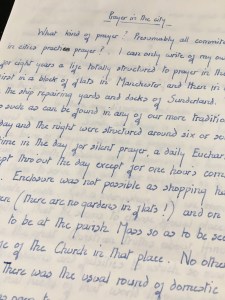 Prayer in the city
What kind of prayer? Presumably all communit
in cities practise prayer! I can only write of my ow
for eight years a life totally structured to prayer in th
first in a block of flats in Manchester, and then in
the ship repairing yards and docks of Sunderland.
as such as can be found in any of our more tradition
day and the night were structured around six or se
time in the day for silent prayer, a daily Euchar
kept thro out the day except for one hours com
Enclosure was not possible as shopping h
(there are no gardens in flats!) and on
to be at the parish Mass so as to be se
of the Church in that place. No othe
There was the usual round of domestic